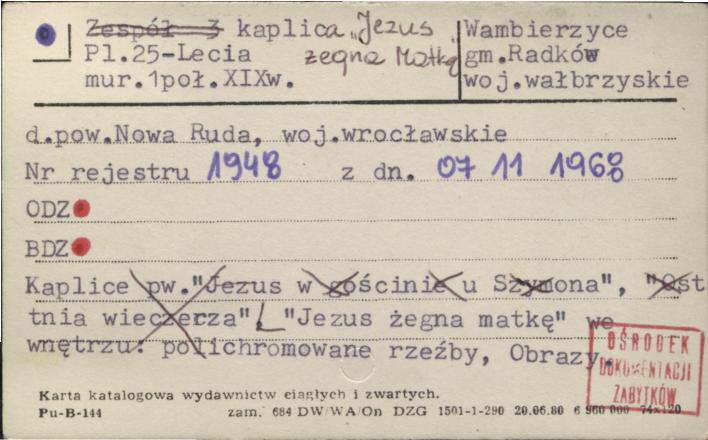 Zespół 3 kaplica „Jezus
żegna Matkę
Pl.25-Lecia
mur.1poł.XIXw.
Wambierzyce
gm.Radków
woj.wałbrzyskie
d.pow.Nowa Ruda, woj.wrocławskie
Nr rejestru 1948 z dn. 07 11 1968
ODZ
BDZ
Kaplice pw."Jezus w gościnie u Szymona", "Ost
tnia wieczerza", "Jezus żegna matkę" we
wnętrzu: polichromowane rzeźby, Obrazy.
OŚRODEK
DOKUMENTACJI
ZABYTKÓW
Karta katalogowa wydawnictw ciągłych i zwartych.
Pu-B-144 zam. 684 DW/WA/On DZG 1501-1-290 20.06.80 6 960 000 74x120